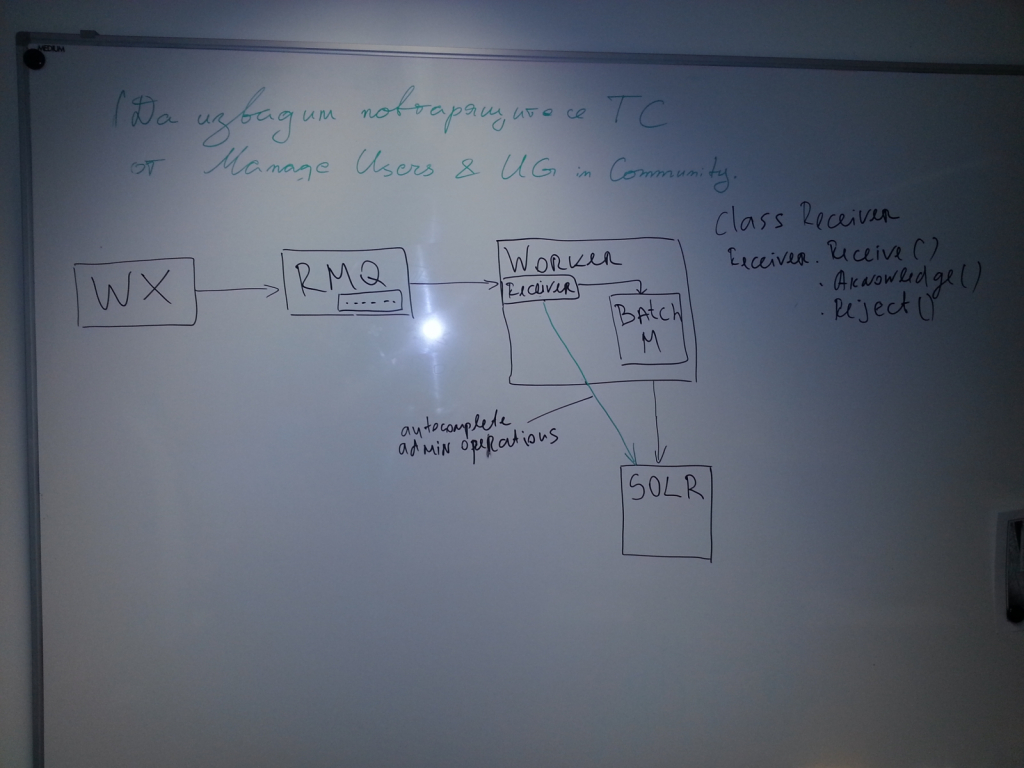 Да извадим повтарящите се TC
от Manage Users & UG in Community.
Class Receiver
Receiver.Receive()
.Aknowledge()
.Reject()
WX
RMQ
WORKER
Receiver
BAtch
M
autocomplete
admin operations
SOLR